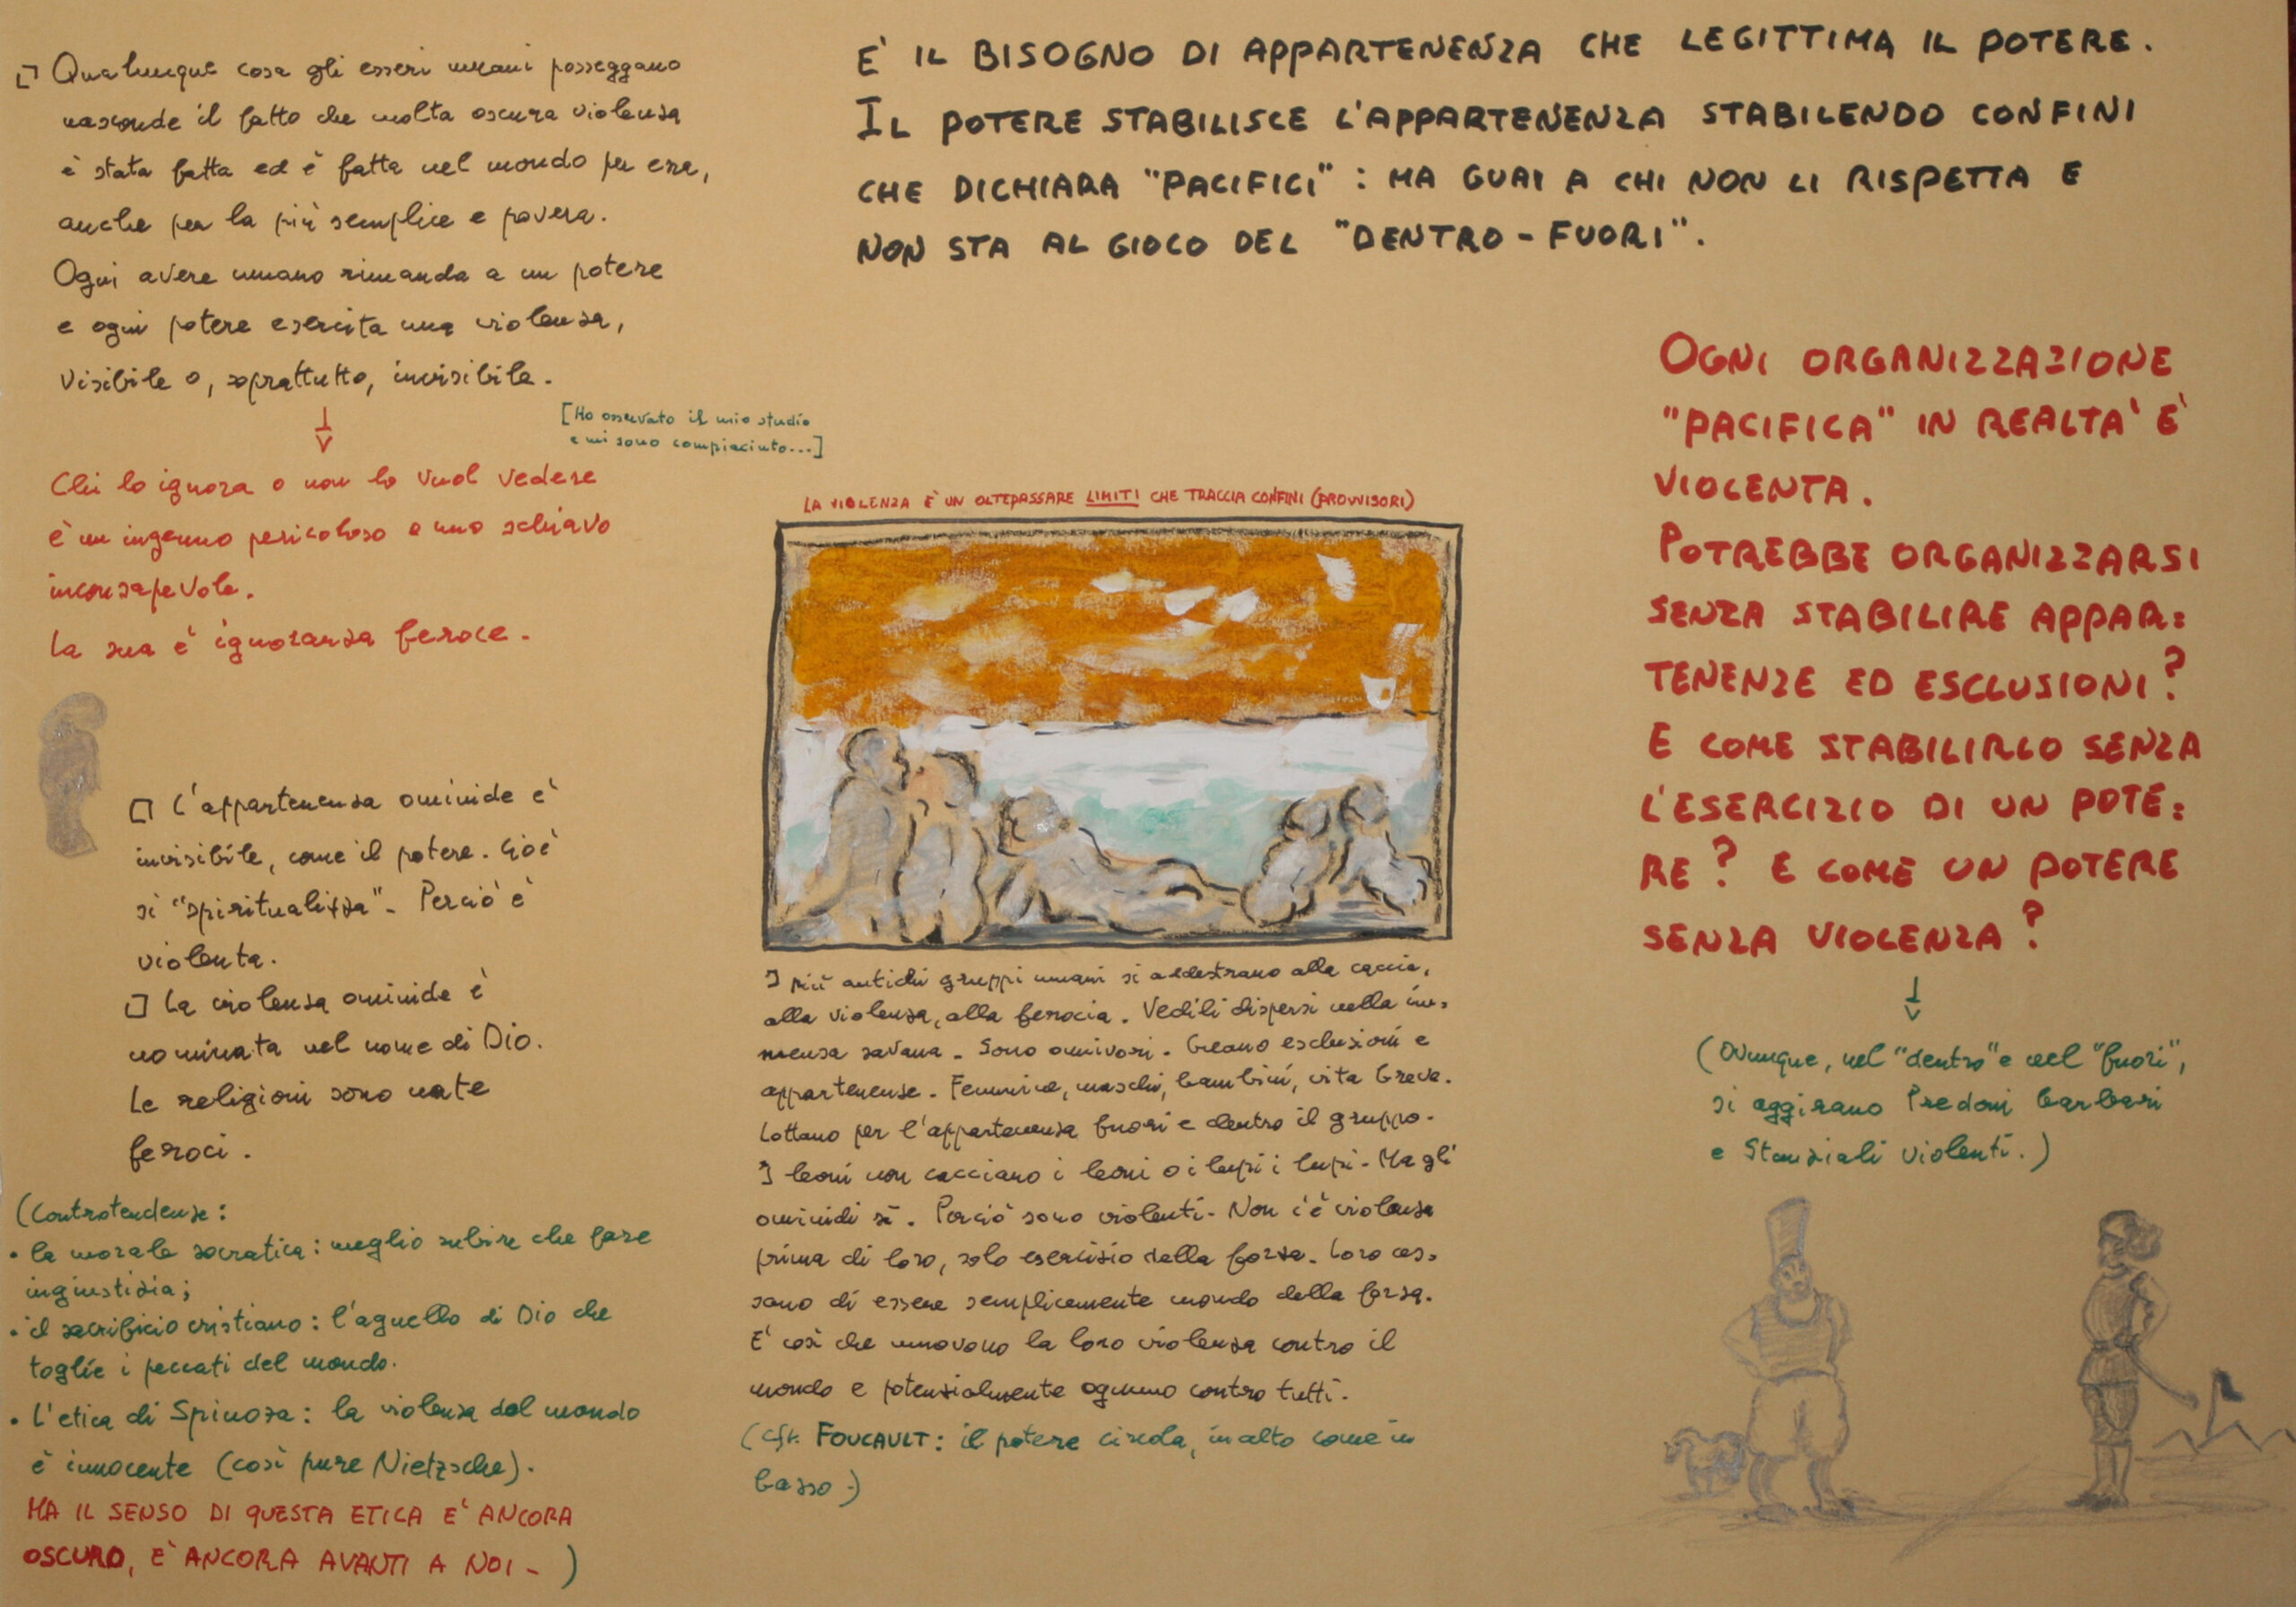 Qualunque cosa gli esseri umani posseggano
nasconde il fatto che molta oscura violenza
è stata fatta ed è fatta nel mondo per essa,
anche per la più semplice e povera.
Ogni avere umano rimanda a un potere
e ogni potere esercita una violenza,
visibile o, soprattutto, invisibile.
[Ho osservato il mio studio
e mi sono compiaciuto...]
Chi lo ignora o non lo vuol vedere
è un ingenuo pericoloso o uno schiavo
inconsapevole.
La sua è ignoranza feroce.
L'appartenenza ominide è
invisibile, come il potere. Cioè
si "spiritualizza". Perciò è
violenta.
La violenza ominide è
nominata nel nome di Dio.
Le religioni sono nate
feroci.
(Controtendenze:
• la morale socratica: meglio subire che fare
ingiustizia;
• il sacrificio cristiano: l'agnello di Dio che
toglie i peccati del mondo.
• L'etica di Spinoza: la violenza del mondo
è innocente (così pure Nietzsche).
MA IL SENSO DI QUESTA ETICA E' ANCORA
OSCURO, E' ANCORA AVANTI A NOI - )
E' IL BISOGNO DI APPARTENENZA CHE LEGITTIMA IL POTERE.
IL POTERE STABILISCE L'APPARTENENZA STABILENDO CONFINI
CHE DICHIARA "PACIFICI": MA GUAI A CHI NON LI RISPETTA E
NON STA AL GIOCO DEL "DENTRO - FUORI".
LA VIOLENZA E' UN OLTEPASSARE LIMITI CHE TRACCIA CONFINI (PROVVISORI)
I più antichi gruppi umani si addestrano alla caccia,
alla violenza, alla ferocia. Vedili dispersi nella im=
mensa savana. Sono onnivori. Creano esclusioni e
appartenenze. Femmine, maschi, bambini, vita breve.
Lottano per l'appartenenza fuori e dentro il gruppo.
I leoni non cacciano i leoni o i lupi i lupi. Ma gli
ominidi sì. Perciò sono violenti. Non c'è violenza
prima di loro, solo esercizio della forza. Loro ces=
sano di essere semplicemente mondo della forza.
E' così che muovono la loro violenza contro il
mondo e potenzialmente ognuno contro tutti.
(cfr. FOUCAULT: il potere circola, in alto come in
basso.)
OGNI ORGANIZZAZIONE
"PACIFICA" IN REALTA' E'
VIOLENTA.
POTREBBE ORGANIZZARSI
SENZA STABILIRE APPAR=
TENENZE ED ESCLUSIONI?
E COME STABILIRLO SENZA
L'ESERCIZIO DI UN POTE=
RE? E COME UN POTERE
SENZA VIOLENZA?
(Ovunque, nel "dentro" e nel "fuori",
si aggirano Predoni barbari
e Stanziali violenti.)